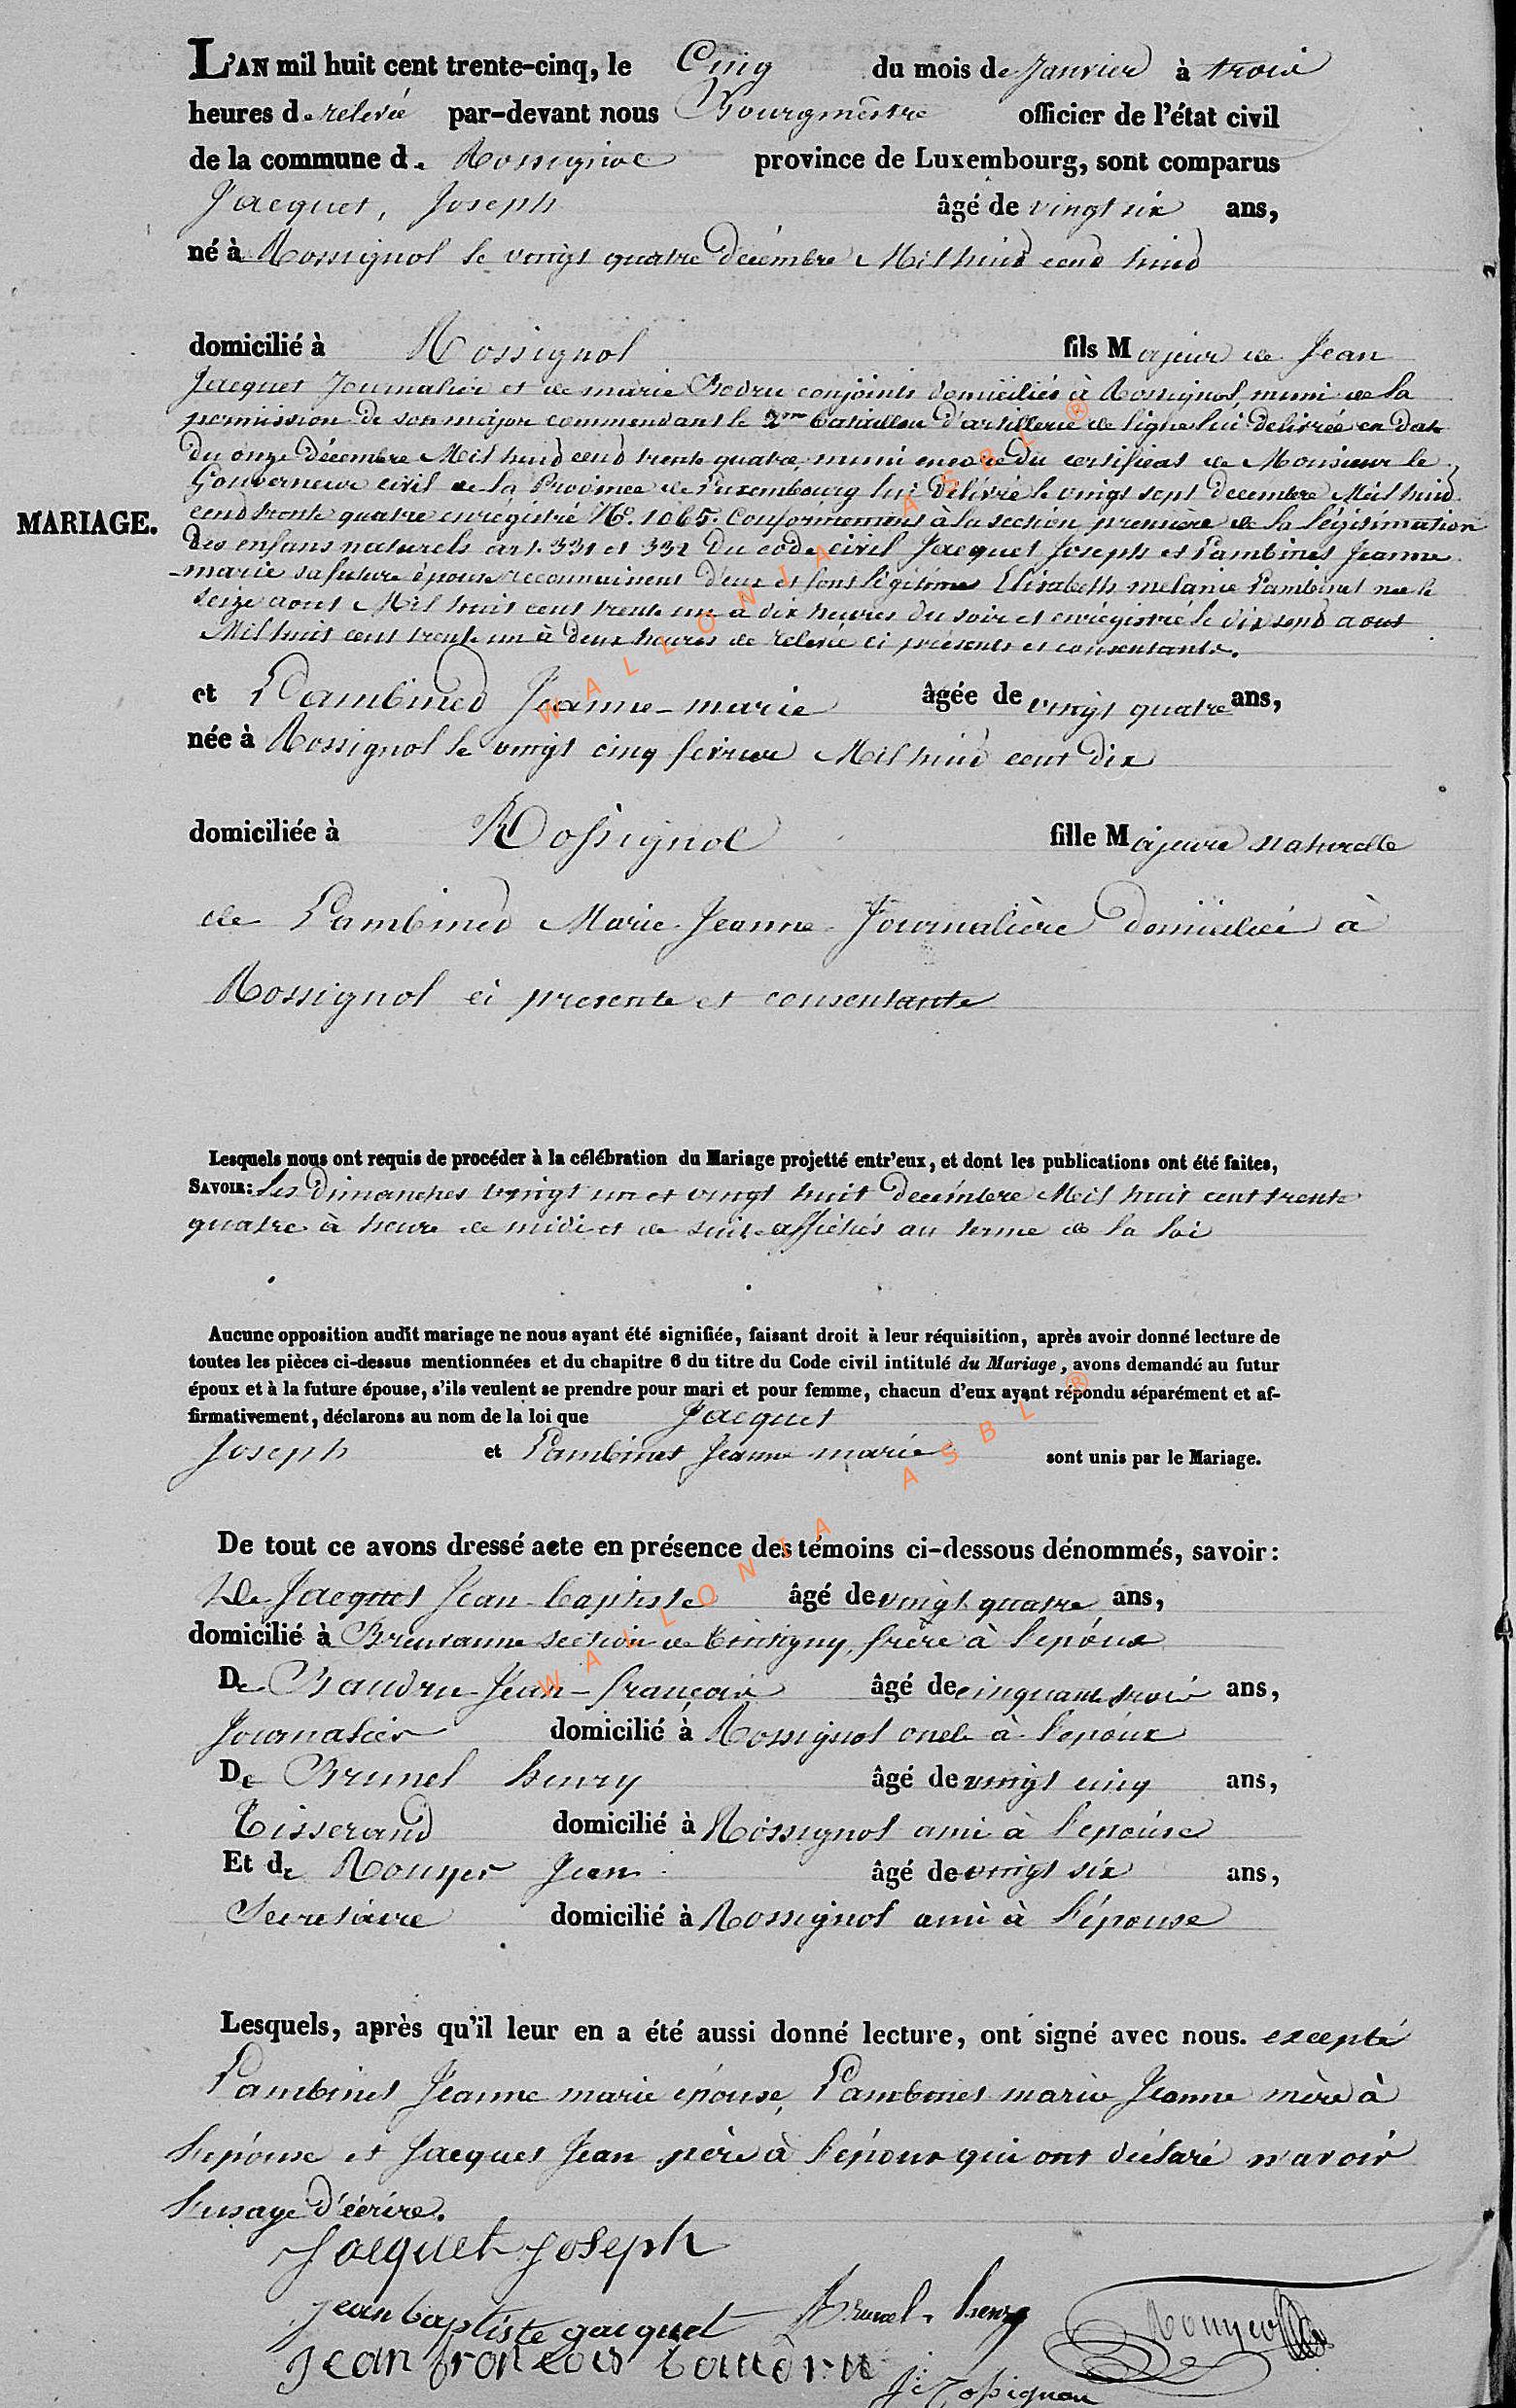 L'AN mil huit cent trente-cinq, le Cinq du mois de Janvier à trois
heures de relevée par-devant nous Bourgmêstre officier de l'état civil
de la commune de Rossignol province de Luxembourg, sont comparus
Jacquet, Joseph âgé de vingt six ans,
né à Rossignol le vingt quatre décémbre Mil huit cent huit
domicilié à Rossignol fils Majeur de Jean
Jacquet Journalier et de marie Bodru conjoints domiciliés à Rossignol, muni de la
permission de son major commendant le 2me bataillon d'artillerie de ligne lui delivrée en date
du onze Décémbre Mil huit cent trente quatre, muni encore du certificat de Monsieur le
Gouverneur civil de la Province de Luxembourg lui délivré le vingt sept decembre Mil huit
MARIAGE.
cent trente quatre enregistré No. 1065. Conformement à la section première de la légitimation
des enfans naturels art. 331 et 332 du code civil Jacquet Joseph et Pambinet Jeanne
marie sa future épouse reconnaissent d'eux et font légitime Elisabeth melanie Pambinet née le
seize aout Mil huit cent trente un à dix heures du soir et enrégistré le dix sept aout
Mil huit cent trente un à deux heures de relevée ci présents et consentants.
et Pambinet Jeanne-marie âgée de vingt quatre ans,
née à Rossignol le vingt cinq fevrier Mil huit cent dix
domiciliée à Rossignol fille Majeure naturelle
de Pambinet Marie-Jeanne Journalière domiciliée à
Rossignol ci presente et consentante
Lesquels nous ont requis de procéder à la célébration du Mariage projetté entr'eux, et dont les publications ont été faites,
SAVOIR: Les Dimanches vingt un et vingt huit Decémbre Mil huit cent trente
quatre à heure de midi et de suite affichés au terme de la loi
Aucune opposition audit mariage ne nous ayant été signifiée, faisant droit à leur réquisition, après avoir donné lecture de
toutes les pièces ci-dessus mentionnées et du chapitre 6 du titre du Code civil intitulé du Mariage, avons demandé au futur
époux et à la future épouse, s'ils veulent se prendre pour mari et pour femme, chacun d'eux ayant répondu séparément et af-
firmativement, déclarons au nom de la loi que Jacquet
Joseph et Pambinet Jeanne marie sont unis par le Mariage.
De tout ce avons dressé acte en présence des témoins ci-dessous dénommés, savoir:
De Jacquet Jean-baptiste âgé de vingt quatre ans,
domicilié à Breuvanne section de tintigny, frère à l'epoux
De Baudru Jean-françois âgé de cinquante trois ans,
Journalier domicilié à Rossignol oncle à l'epoux
De Brunel henry âgé de vingt cinq ans,
Tisserand domicilié à Rossignol ami à l'epouse
Et de Rouyer Jean âgé de vingt six ans,
Secretaire domicilié à Rossignol ami à l'épouse
Lesquels, après qu'il leur en a été aussi donné lecture, ont signé avec nous. excepté
Pambinet Jeanne marie épouse, Pambinet marie Jeanne mère à
l'epouse et Jacquet Jean père à l'époux qui ont déclaré n'avoir
l'usage d'écrire.
Jacquet Joseph
jean baptiste jacquet Brunel henry Rouyer
jean francois baudru
WALLONIA ASBL ®
WALLONIA ASBL ®